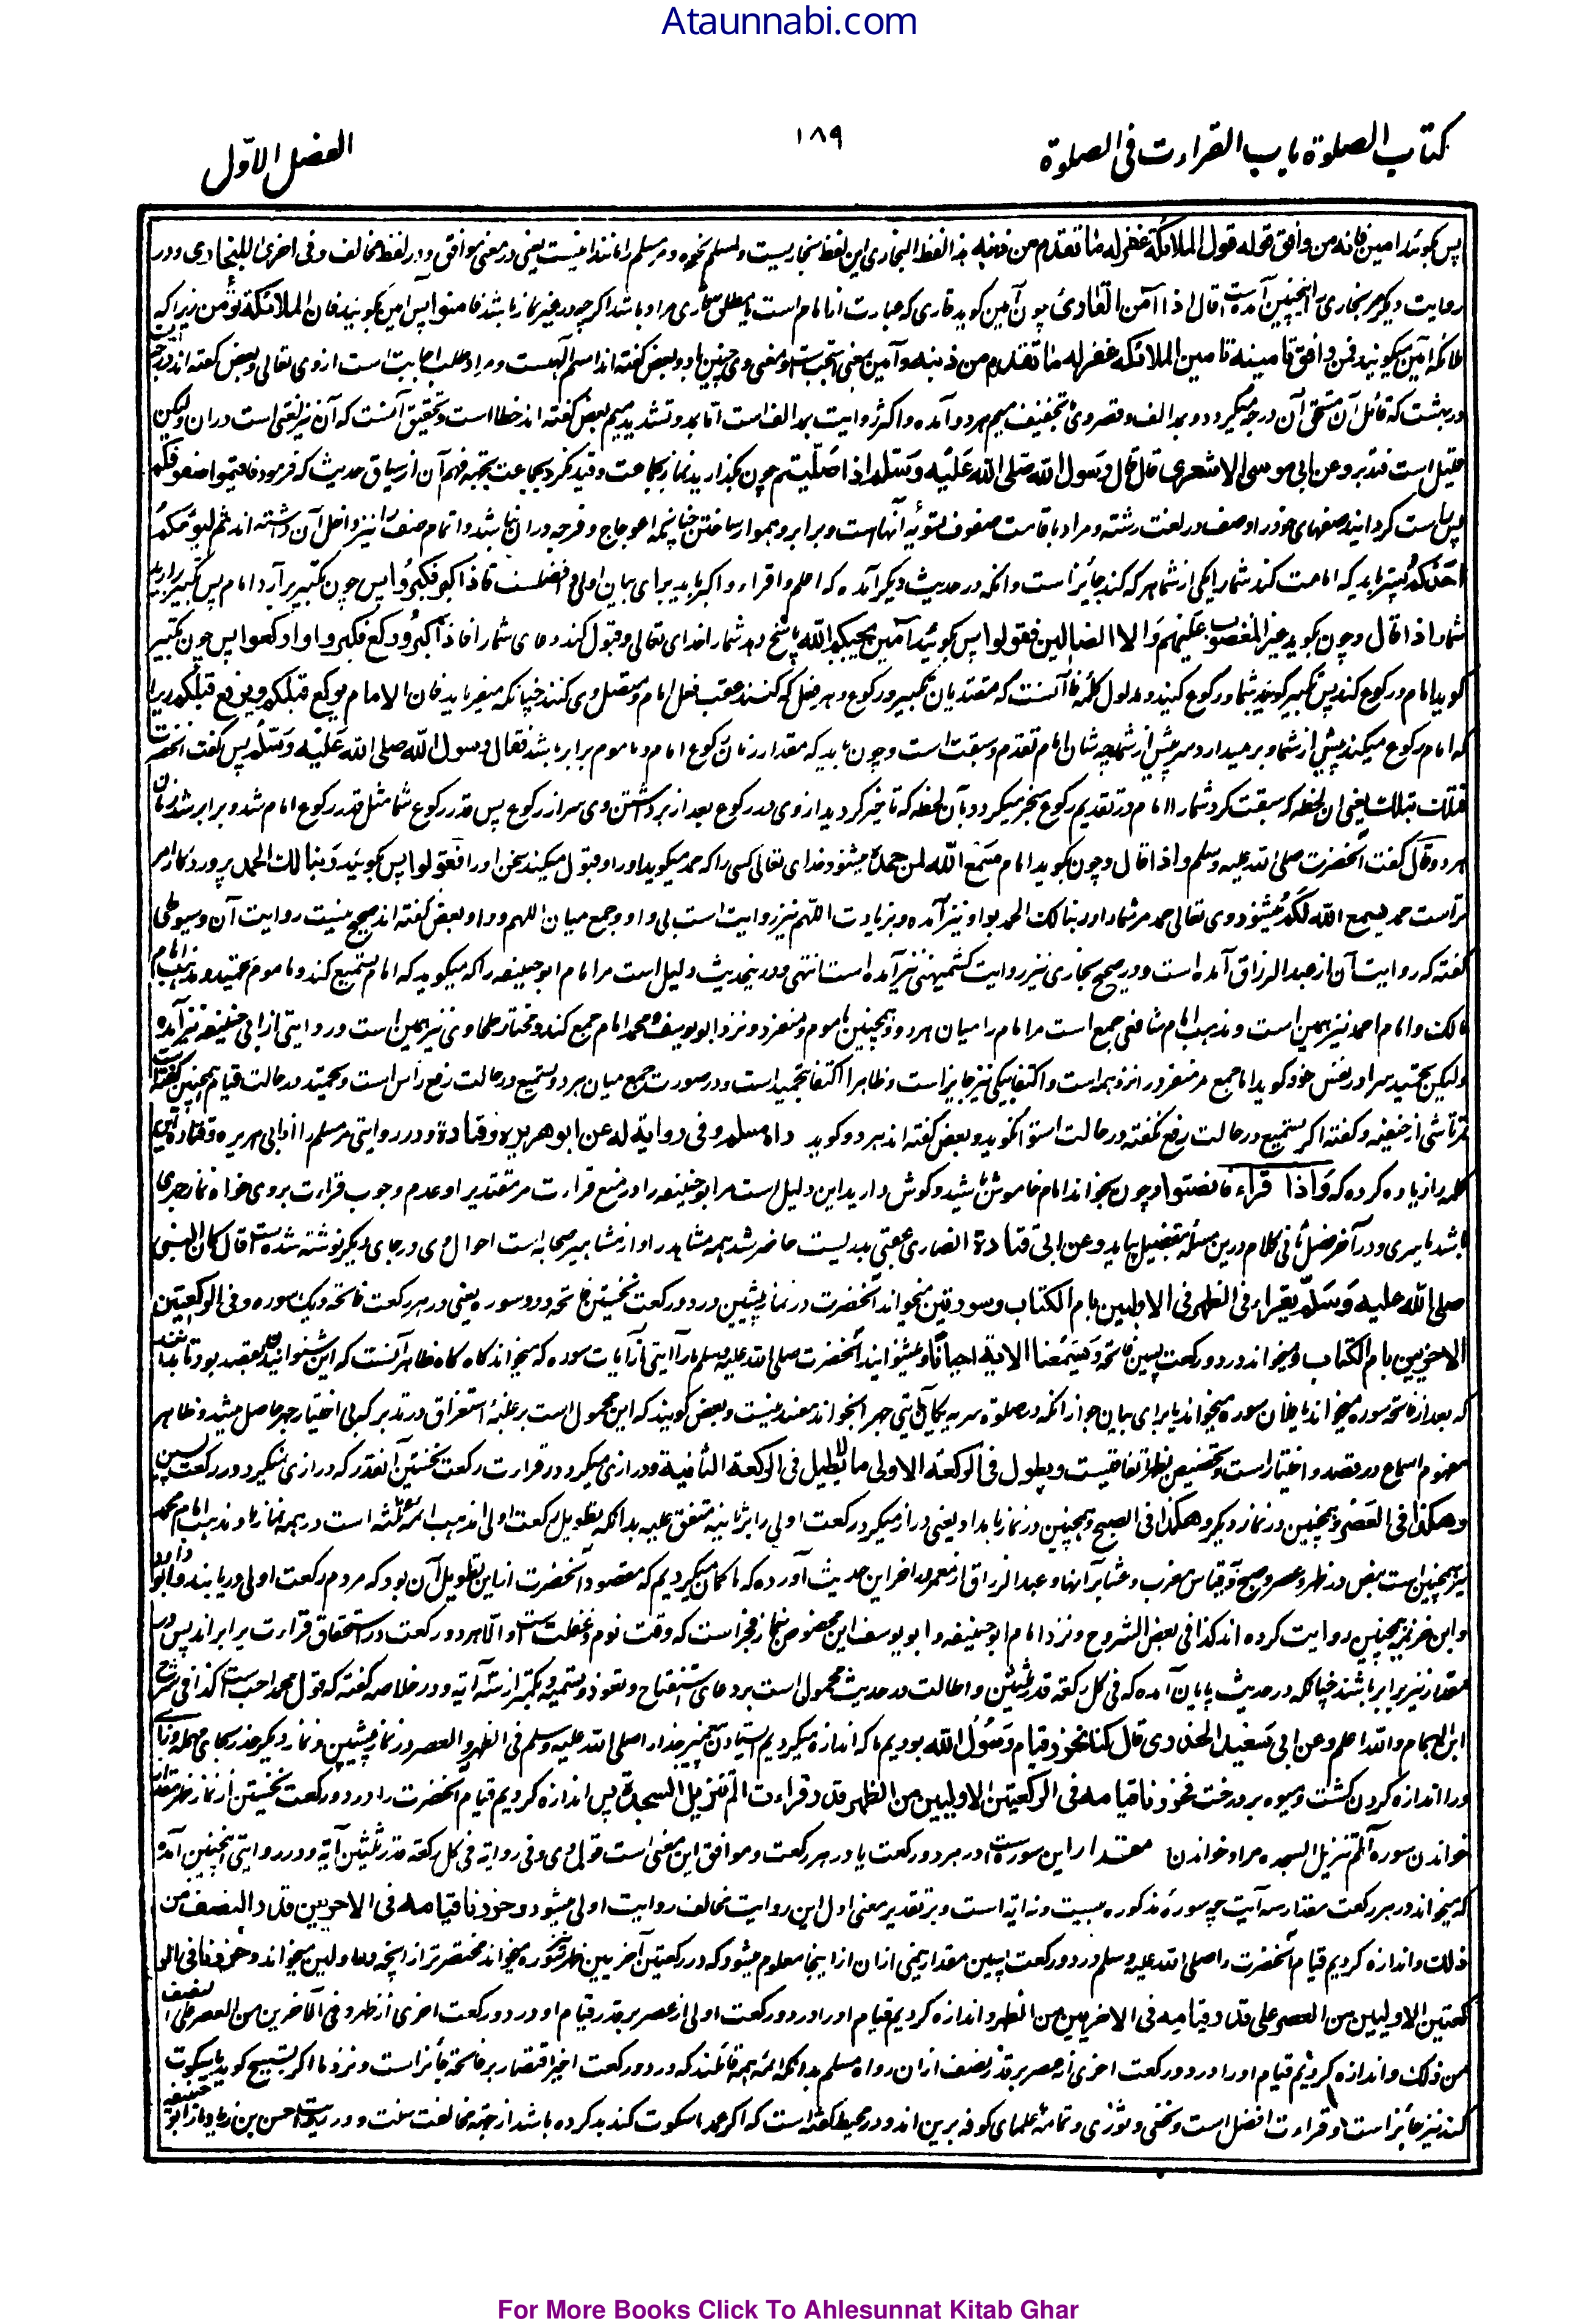 Ataunnabi.com
کتاب الصلوة باب القراءت فی الصلوة
۱۸۹
الفصل الاول
پس بگوئید امین فانه من وافق قوله قول الملائكة غفر له ما تقدم من ذنبه هذا لفظ البخاری این لفظ بخاریست ولمسلم نحوه و مر مسلم را مانند اینست یعنی در معنی موافق و در لفظ مخالف وفی اخری للبخاری ودر
روایت دیگر مر بخاری را اینچنین آمده است قال اذا امن القاری چون آمین گوید قاری که عبارت از امام است یا مطلق قاری مراد باشد اگرچه در غیر نماز باشد فامنوا پس امین بگوئید فان الملائكة تؤمن زیرا که
ملائکه آمین میگویند فمن وافق تامينه تامين الملائكة غفر له ما تقدم من ذنبه وآمین بمعنی استجب است و معنی وی چنین باد و بعض گفته اند اسم الهیست و مراد طلب اجابت است از وی تعالی و بعض گفته اند درجه ایست
در بهشت که قائل آن مستحق آن درجه میگردد و بمد الف و قصر وی و تخفیف میم هر دو آمده و اکثر روایت بمد الف است اما بمد و تشدید میم بعض گفته اند خطا است و تحقیق آنست که آن نیز لغتی است دران ولیکن
قلیل است فتدبر وعن ابی موسی الاشعری قال قال رسول الله صلی الله علیه وسلم اذا صلیتم چون بگذارید نماز بجماعت و قید نکرد بجماعت بجهت فهم آن از سیاق حدیث که فرمود فاقیموا صفوفکم
پس راست گردانید صفهای خود را و صف در لغت رشته و مراد باقامت صفوف تسویه آنهاست و برابر و هموار ساختن چنانچه اعوجاج و فرجه دران نباشد و اتمام صف را نیز داخل آن داشته اند ثم لیؤمکم
احدکم پستر باید که امامت کند شما را یکی از شما هر که کند جائز است و آنکه در حدیث دیگر آمده که اعلم و اقراء و اکبر باید برای بیان اولی و افضلست فاذا کبر فکبروا پس چون تکبیر برآرد امام پس تکبیر برآرید
شما واذا قال وچون بگوید غیر المغضوب علیهم ولا الضالین فقولوا پس بگوئید آمین یجبکم الله پاسخ دهد شما را خدای تعالی و قبول کند دعای شما را فاذا کبر ورکع فکبروا وارکعوا پس چون تکبیر
گوید امام و رکوع کند پس تکبیر گوئید شما و رکوع کنید و مدلول کلمه فا آنست که مقتدیان تکبیر و رکوع و هر فعل که کنند عقب فعل امام و متصل وی کنند چنانکه میفرماید فان الامام یرکع قبلکم ویرفع قبلکم زیرا
که امام رکوع میکند پیش از شما و برمیدارد سر پیش از شما چه شان امام تقدم و سبقت است و چون باید که مقدار زمان رکوع امام و ماموم برابر باشد فقال رسول الله صلی الله علیه وسلم پس گفت آنحضرت
فتلک بتلک یعنی ان لحظه که سبقت کرد شما را امام در تقدیم رکوع منجبر میگردد بآن لحظه که تاخیر کردید از وی در رکوع بعد از برداشتن وی سر از رکوع پس قدر رکوع شما مثل قدر رکوع امام شد و برابر شد زمان
هر دو وقال گفت آنحضرت صلی الله علیه وسلم واذا قال وچون بگوید امام سمع الله لمن حمده میشنود خدای تعالی کسی را که حمد میگوید او را و قبول میکند سخن او را فقولوا پس بگوئید ربنا لک الحمد پروردگارا مر
تراست حمد یسمع الله لکم میشنود وی تعالی حمد مر شما را و ربنا لک الحمد بواو نیز آمده و بزیادت اللهم نیز روایت است بی واو و جمع میان اللهم و واو بعض گفته اند صحیح نیست روایت آن و سیوطی
گفته که روایت آن از عبد الرزاق آمده است و در صحیح بخاری نیز روایت کشمیهنی نیز آمده است انتهی و درین حدیث دلیل است مر امام ابو حنیفه را که میگوید که امام تسمیع کند و ماموم تحمید و مذهب امام
مالک و امام احمد نیز همین است و مذهب امام شافعی جمع است مر امام را میان هر دو و همچنین ماموم و منفرد و نزد ابو یوسف و محمد امام جمع کند و مختار طحاوی نیز همین است و در روایتی از ابی حنیفه نیز آمده
ولیکن تحمید سرا در نفس خود گوید اما جمع مر منفرد را نزد همه است و اکتفا بیکی نیز جایز است و ظاهرا اکتفا بتحمید است و در صورت جمع میان هر دو تسمیع در حالت رفع رأس است و تحمید در حالت قیام همچنین گفته است
تمرتاشی از حنفیه و گفته اگر تسمیع در حالت رفع نگفته در حالت استوا نگوید و بعض گفته اند هر دو گوید رواه مسلم وفی روایة له عن ابو هریره وقتادة و در روایتی مر مسلم را از ابی هریره و قتاده این
کلمه را زیاده کرده که واذا قراء فانصتوا و چون بخواند امام خاموش باشید و گوش دارید این دلیل است مر ابو حنیفه را در منع قراءت مر مقتدی را و عدم وجوب قراءت بر وی خواه نماز جهری
باشد یا سری و در آخر فصل ثانی کلام درین مسئله بتفصیل بیاید وعن ابی قتادة انصاری عقبی بدریست حاضر شد همه مشاهد را و از مشاهیر صحابه است احوال وی در جای دیگر نوشته شده است قال کان النبی
صلی الله علیه وسلم یقراء فی الظهر فی الاولیین بام الکتاب وسورتین میخواند آنحضرت در نماز پیشین در دو رکعت نخستین فاتحه و دو سوره یعنی در هر رکعت فاتحه و یک سوره وفی الرکعتین
الاخریین بام الکتاب و میخواند در دو رکعت پسین فاتحه ویسمعنا الایة احیانا و میشنوانید آنحضرت صلی الله علیه وسلم ما را آیتی از آیات سوره که میخواند گاه گاه ظاهر آنست که این شنوانیدن بقصد بود تا بدانند
که بعد از فاتحه سوره میخواند یا فلان سوره میخواند یا برای بیان جواز آنکه در صلوة سریه یکان آیتی جهر بخواند مفسد نیست و بعض گویند که این محمول است بر غلبه استغراق در تدبر که بی اختیار جهر حاصل میشد و ظاهر
مفهوم اسماع در قصد و اختیار است و تخصیص بظهر اتفاقیست ویطول فی الرکعة الاولی ما لا یطیل فی الرکعة الثانیة و درازی میکرد در قراءت رکعت نخستین آنقدر که درازی نمیکرد در رکعت پسین
وهکذا فی العصر و همچنین در نماز دیگر وهکذا فی الصبح و همچنین در نماز بامداد یعنی دراز میکرد رکعت اولی را بر ثانیه متفق علیه بدانکه تطویل رکعت اولی مذهب ائمه ثلثه است در همه نمازها و مذهب امام محمد
نیز همچنین است بنص در ظهر و عصر و صبح و بقیاس مغرب و عشا بر آنها و عبد الرزاق از معمر در اخر این حدیث آورده که ما گمان میکردیم که مقصود آنحضرت از این تطویل آن بود که مردم رکعت اولی دریابند و ابو داود
و ابن خزیمه نیز همچنین روایت کرده اند کذا فی بعض الشروح و نزد امام ابو حنیفه و ابو یوسف این مخصوص بنماز فجر است که وقت نوم و غفلت است و الا هر دو رکعت در استحقاق قراءت برابر اند پس در
مقدار نیز برابر باشند چنانکه در حدیث پایان آمده که فی کل رکعة قدر ثلثین و اطالت در حدیث محمول است بر دعای استفتاح و تعوذ و تسمیه و بکمتر از سه آیه و در خلاصه گفته که قول محمد احب است کذا فی شرح
ابن الهمام والله اعلم وعن ابی سعید الخدری قال کنا نحزر قیام رسول الله بودیم ما که اندازه میکردیم استادن پیغمبر خدا را صلی الله علیه وسلم فی الظهر والعصر در نماز پیشین و نماز دیگر حزر بحای مهمله و زای
و را اندازه کردن کشت و میوه بر درخت فحزرنا قیامه فی الرکعتین الاولیین من الظهر قدر قراءت الم تنزیل السجدة پس اندازه کردیم قیام آنحضرت را در دو رکعت نخستین از نماز ظهر مقدار
خواندن سوره الم تنزیل السجده مراد خواندن مقدار این سورت است در هر دو رکعت یا در هر رکعت و موافق این معنی است قول وی وفی روایة فی کل رکعة قدر ثلثین آیة و در روایتی اینچنین آمده
که میخواند در هر رکعت مقدار سی آیت چه سورهٔ مذکوره بیست و نه آیه است و بر تقدیر معنی اول این روایت مخالف روایت اولی میشود وحزرنا قیامه فی الاخریین قدر النصف من
ذلک و اندازه کردیم قیام آنحضرت را صلی الله علیه وسلم در دو رکعت پسین مقدار نیمی ازان از اینجا معلوم میشود که در رکعتین آخریین ظهر نیز سوره میخواند مختصرتر از آنچه در اولین میخواند وحزرنا فی الر
کعتین الاولیین من العصر علی قدر قیامه فی الاخریین من الظهر و اندازه کردیم قیام او را در دو رکعت اولی از عصر بر قدر قیام او در دو رکعت اخری از ظهر وفی الاخریین من العصر علی النصف
من ذلک و اندازه کردیم قیام او را در دو رکعت اخری از عصر بر قدر نصف ازان رواه مسلم بدانکه ائمه همه قائلند که در دو رکعت اخیر اقتصار بر فاتحه جائز است و نزد ما اگر تسبیح گوید یا سکوت
کند نیز جائز است و قراءت افضل است و نخعی و ثوری و تمامه علمای کوفه برین اند و در محیط گفته است که اگر عمدا سکوت کند بد کرده باشد از جهة مخالفت سنت و در روایت حسن بن زیاد از ابو حنیفه
For More Books Click To Ahlesunnat Kitab Ghar